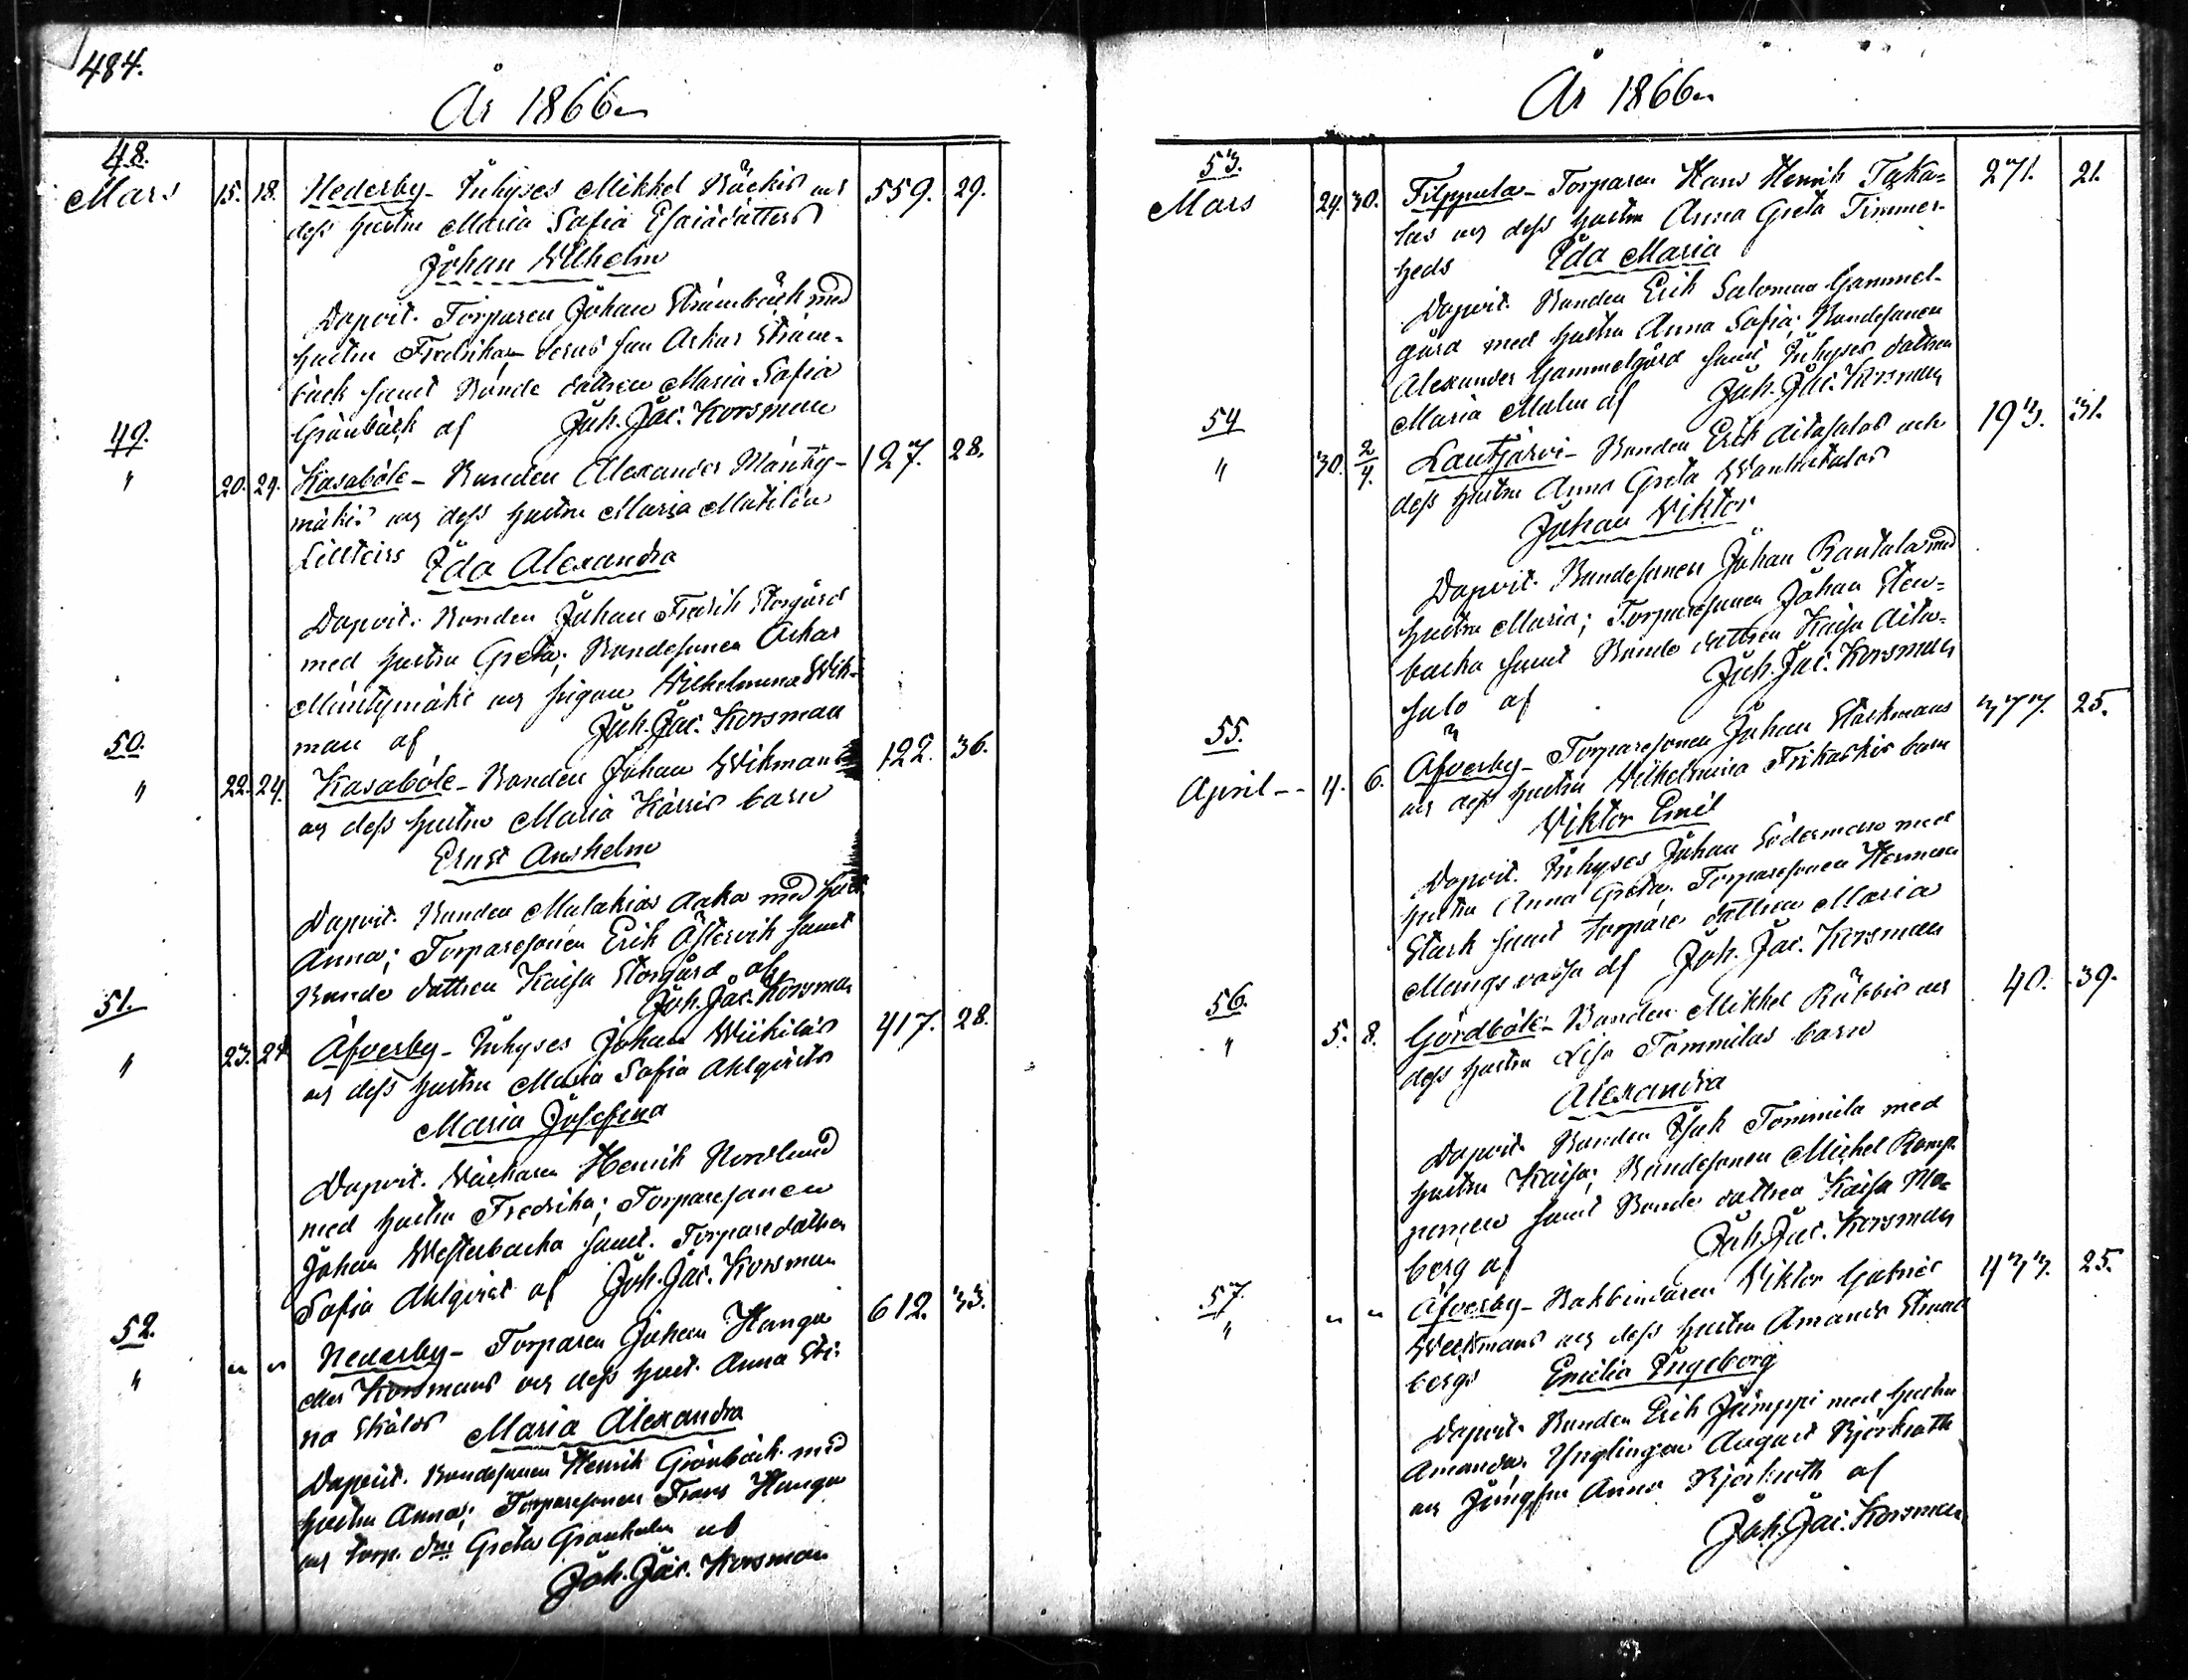 484.
År 1866
48.
Mars 15. 18. Nederby - Inhyses Mikkel Bäckis och 559. 29.
dess hustru Maria Sofia Esaiädotters
Johan Wilhelm
Dopvit. Torparen Johan Strömbäck med
hustru Fredrika, deras son Oskar Ström-
bäck samt Bonde dottren Maria Sofia
Grönbäck af Joh. Jac. Korsman
49.
" 20. 24. Kasaböle - Bonden Alexander Mänty- 127. 28.
mäkis och dess hustru Maria Matilda
Lillteirs Ida Alexandra
Dopvit. Bonden Johan Fredrik Storgård
med hustru Greta; Bondesonen Oskar
Mäntymäki och pigan Wilhelmina Wik-
man af Joh. Jac. Korsman
50.
" 22. 24. Kasaböle - Bonden Johan Wikmans 122. 36.
och dess hustru Maria Kärris barn
Ernst Anshelm
Dopvit. Bonden Malakias Aaka med hust.
Anna; Torparesonen Erik Östervik samt
Bonde dottren Kaisa Storgård af
Joh. Jac. Korsman
51.
" 23. 24. Åfverby - Inhyses Johan Wiikiläs 417. 28.
och dess hustru Maria Sofia Ahlqvists
Maria Josefina
Dopvit. Närkaren Henrik Nordlund
med hustru Fredrika; Torparesonen
Johan Westerbacka samt Torparedottren
Sofia Ahlqvist af Joh. Jac. Korsman
52.
" " " Nederby - Torparen Johan Hanga 612. 33.
eller Korsmans och dess hust. Anna Sti-
na Skålos Maria Alexandra
Dopvit. Bondesonen Henrik Grönbäck med
hustru Anna; Torparesonen Frans Hanga
och torp. dtr Greta Granholm af
Joh. Jac. Korsman
År 1866
53.
Mars 24. 30. Filppula - Torparen Hans Henrik Taka- 271. 21.
las och dess hustru Anna Greta Timmer-
heds Ida Maria
Dopvit. Bonden Erik Salomon Gammel-
gård med hustru Anna Sofia; Bondesonen
Alexander Gammelgård samt Inhyses dottren
Maria Malm af Joh. Jac. Korsman
54
" 30. 2/4. Lautjärvi - Bonden Erik Aitasalos och 193. 31.
dess hustru Anna Greta Wanhatalos
Johan Viktor
Dopvit. Bondesonen Johan Rantala med
hustru Maria; Torparesonen Johan Sten-
backa samt Bonde dottren Kaisa Aita-
salo af Joh. Jac. Korsman
55.
April - - 4. 6. Åfverby - Torparesonen Johan Starkmans 377. 25.
och dess hustru Wilhelmina Friskaskis barn
Viktor Emil
Dopvit. Inhyses Johan Söderman med
hustru Anna Greta. Torparesonen Herman
Stark samt torpare dottren Maria
Mangsvassa af Joh. Jac. Korsman
56.
" 5. 8. Gårdböle - Bonden Mikkel Räbbis och 40. 39.
dess hustru Lisa Tommilas barn
Alexandra
Dopvit. Bonden Isak Tommila med
hustru Kaisa; Bondesonen Michel Romp-
panen samt Bonde dottren Kaisa Mo-
berg af Joh. Jac. Korsman
57.
" " " Åfverby - Bokbindaren Viktor Gabriel 433. 25.
Weckmans och dess hustru Amanda Strand
bergs Emilia Ingeborg
Dopvit. Bonden Erik Jåmppi med hustru
Amanda. Ynglingen August Björkroth
och Jungfru Anna Björkroth af
Joh. Jac. Korsman